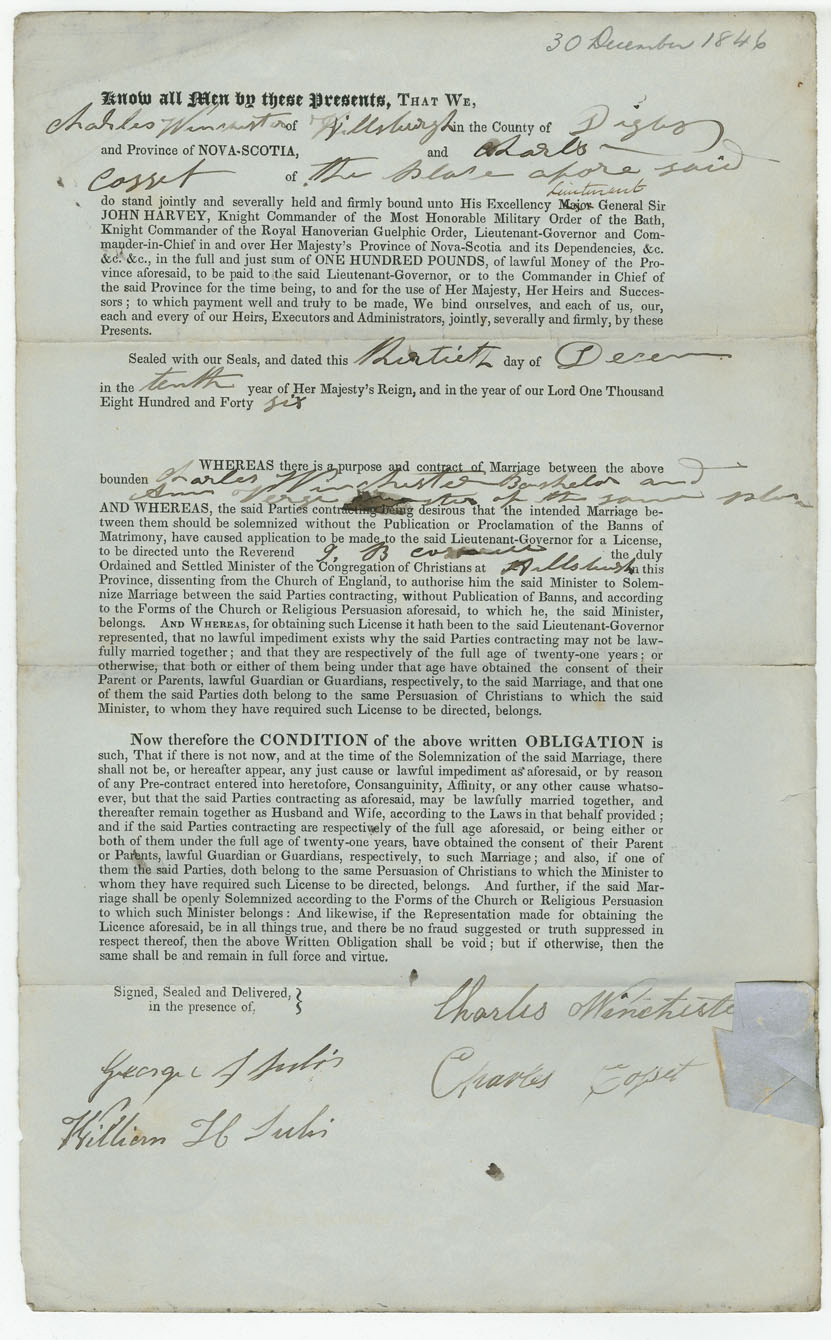 30 December 1846
Know all Men by these Presents, THAT WE,
Charles Winchester of Hillsburgh in the County of Digby
and Province of NOVA-SCOTIA, and Charls
Cosset of the plase afore said
Lieutenant
do stand jointly and severally held and firmly bound unto His Excellency Major General Sir
JOHN HARVEY, Knight Commander of the Most Honorable Military Order of the Bath,
Knight Commander of the Royal Hanoverian Guelphic Order, Lieutenant-Governor and Com-
mander-in-Chief in and over Her Majesty's Province of Nova-Scotia and its Dependencies, &c.
&c. &c., in the full and just sum of ONE HUNDRED POUNDS, of lawful Money of the Pro-
vince aforesaid, to be paid to the said Lieutenant-Governor, or to the Commander in Chief of
the said Province for the time being, to and for the use of Her Majesty, Her Heirs and Succes-
sors ; to which payment well and truly to be made, We bind ourselves, and each of us, our,
each and every of our Heirs, Executors and Administrators, jointly, severally and firmly, by these
Presents.
Sealed with our Seals, and dated this thirtieth day of Decem
in the tenth year of Her Majesty's Reign, and in the year of our Lord One Thousand
Eight Hundred and Forty six
WHEREAS there is a purpose and contract of Marriage between the above
bounden Charles Winchester Bachelor and
Ann of the same plase
AND WHEREAS, the said Parties contracting being desirous that the intended Marriage be-
tween them should be solemnized without the Publication or Proclamation of the Banns of
Matrimony, have caused application to be made to the said Lieutenant-Governor for a License,
to be directed unto the Reverend B the duly
Ordained and Settled Minister of the Congregation of Christians at Hillsburgh in this
Province, dissenting from the Church of England, to authorise him the said Minister to Solem-
nize Marriage between the said Parties contracting, without Publication of Banns, and according
to the Forms of the Church or Religious Persuasion aforesaid, to which he, the said Minister,
belongs. AND WHEREAS, for obtaining such License it hath been to the said Lieutenant-Governor
represented, that no lawful impediment exists why the said Parties contracting may not be law-
fully married together ; and that they are respectively of the full age of twenty-one years ; or
otherwise, that both or either of them being under that age have obtained the consent of their
Parent or Parents, lawful Guardian or Guardians, respectively, to the said Marriage, and that one
of them the said Parties doth belong to the same Persuasion of Christians to which the said
Minister, to whom they have required such License to be directed, belongs.
Now therefore the CONDITION of the above written OBLIGATION is
such, That if there is not now, and at the time of the Solemnization of the said Marriage, there
shall not be, or hereafter appear, any just cause or lawful impediment as aforesaid, or by reason
of any Pre-contract entered into heretofore, Consanguinity, Affinity, or any other cause whatso-
ever, but that the said Parties contracting as aforesaid, may be lawfully married together, and
thereafter remain together as Husband and Wife, according to the Laws in that behalf provided ;
and if the said Parties contracting are respectively of the full age aforesaid, or being either or
both of them under the full age of twenty-one years, have obtained the consent of their Parent
or Parents, lawful Guardian or Guardians, respectively, to such Marriage ; and also, if one of
them the said Parties, doth belong to the same Persuasion of Christians to which the Minister to
whom they have required such License to be directed, belongs. And further, if the said Mar-
riage shall be openly Solemnized according to the Forms of the Church or Religious Persuasion
to which such Minister belongs : And likewise, if the Representation made for obtaining the
Licence aforesaid, be in all things true, and there be no fraud suggested or truth suppressed in
respect thereof, then the above Written Obligation shall be void ; but if otherwise, then the
same shall be and remain in full force and virtue.
Signed, Sealed and Delivered, }
in the presence of,
Charles Winchester
George
Charles Cosset
William H